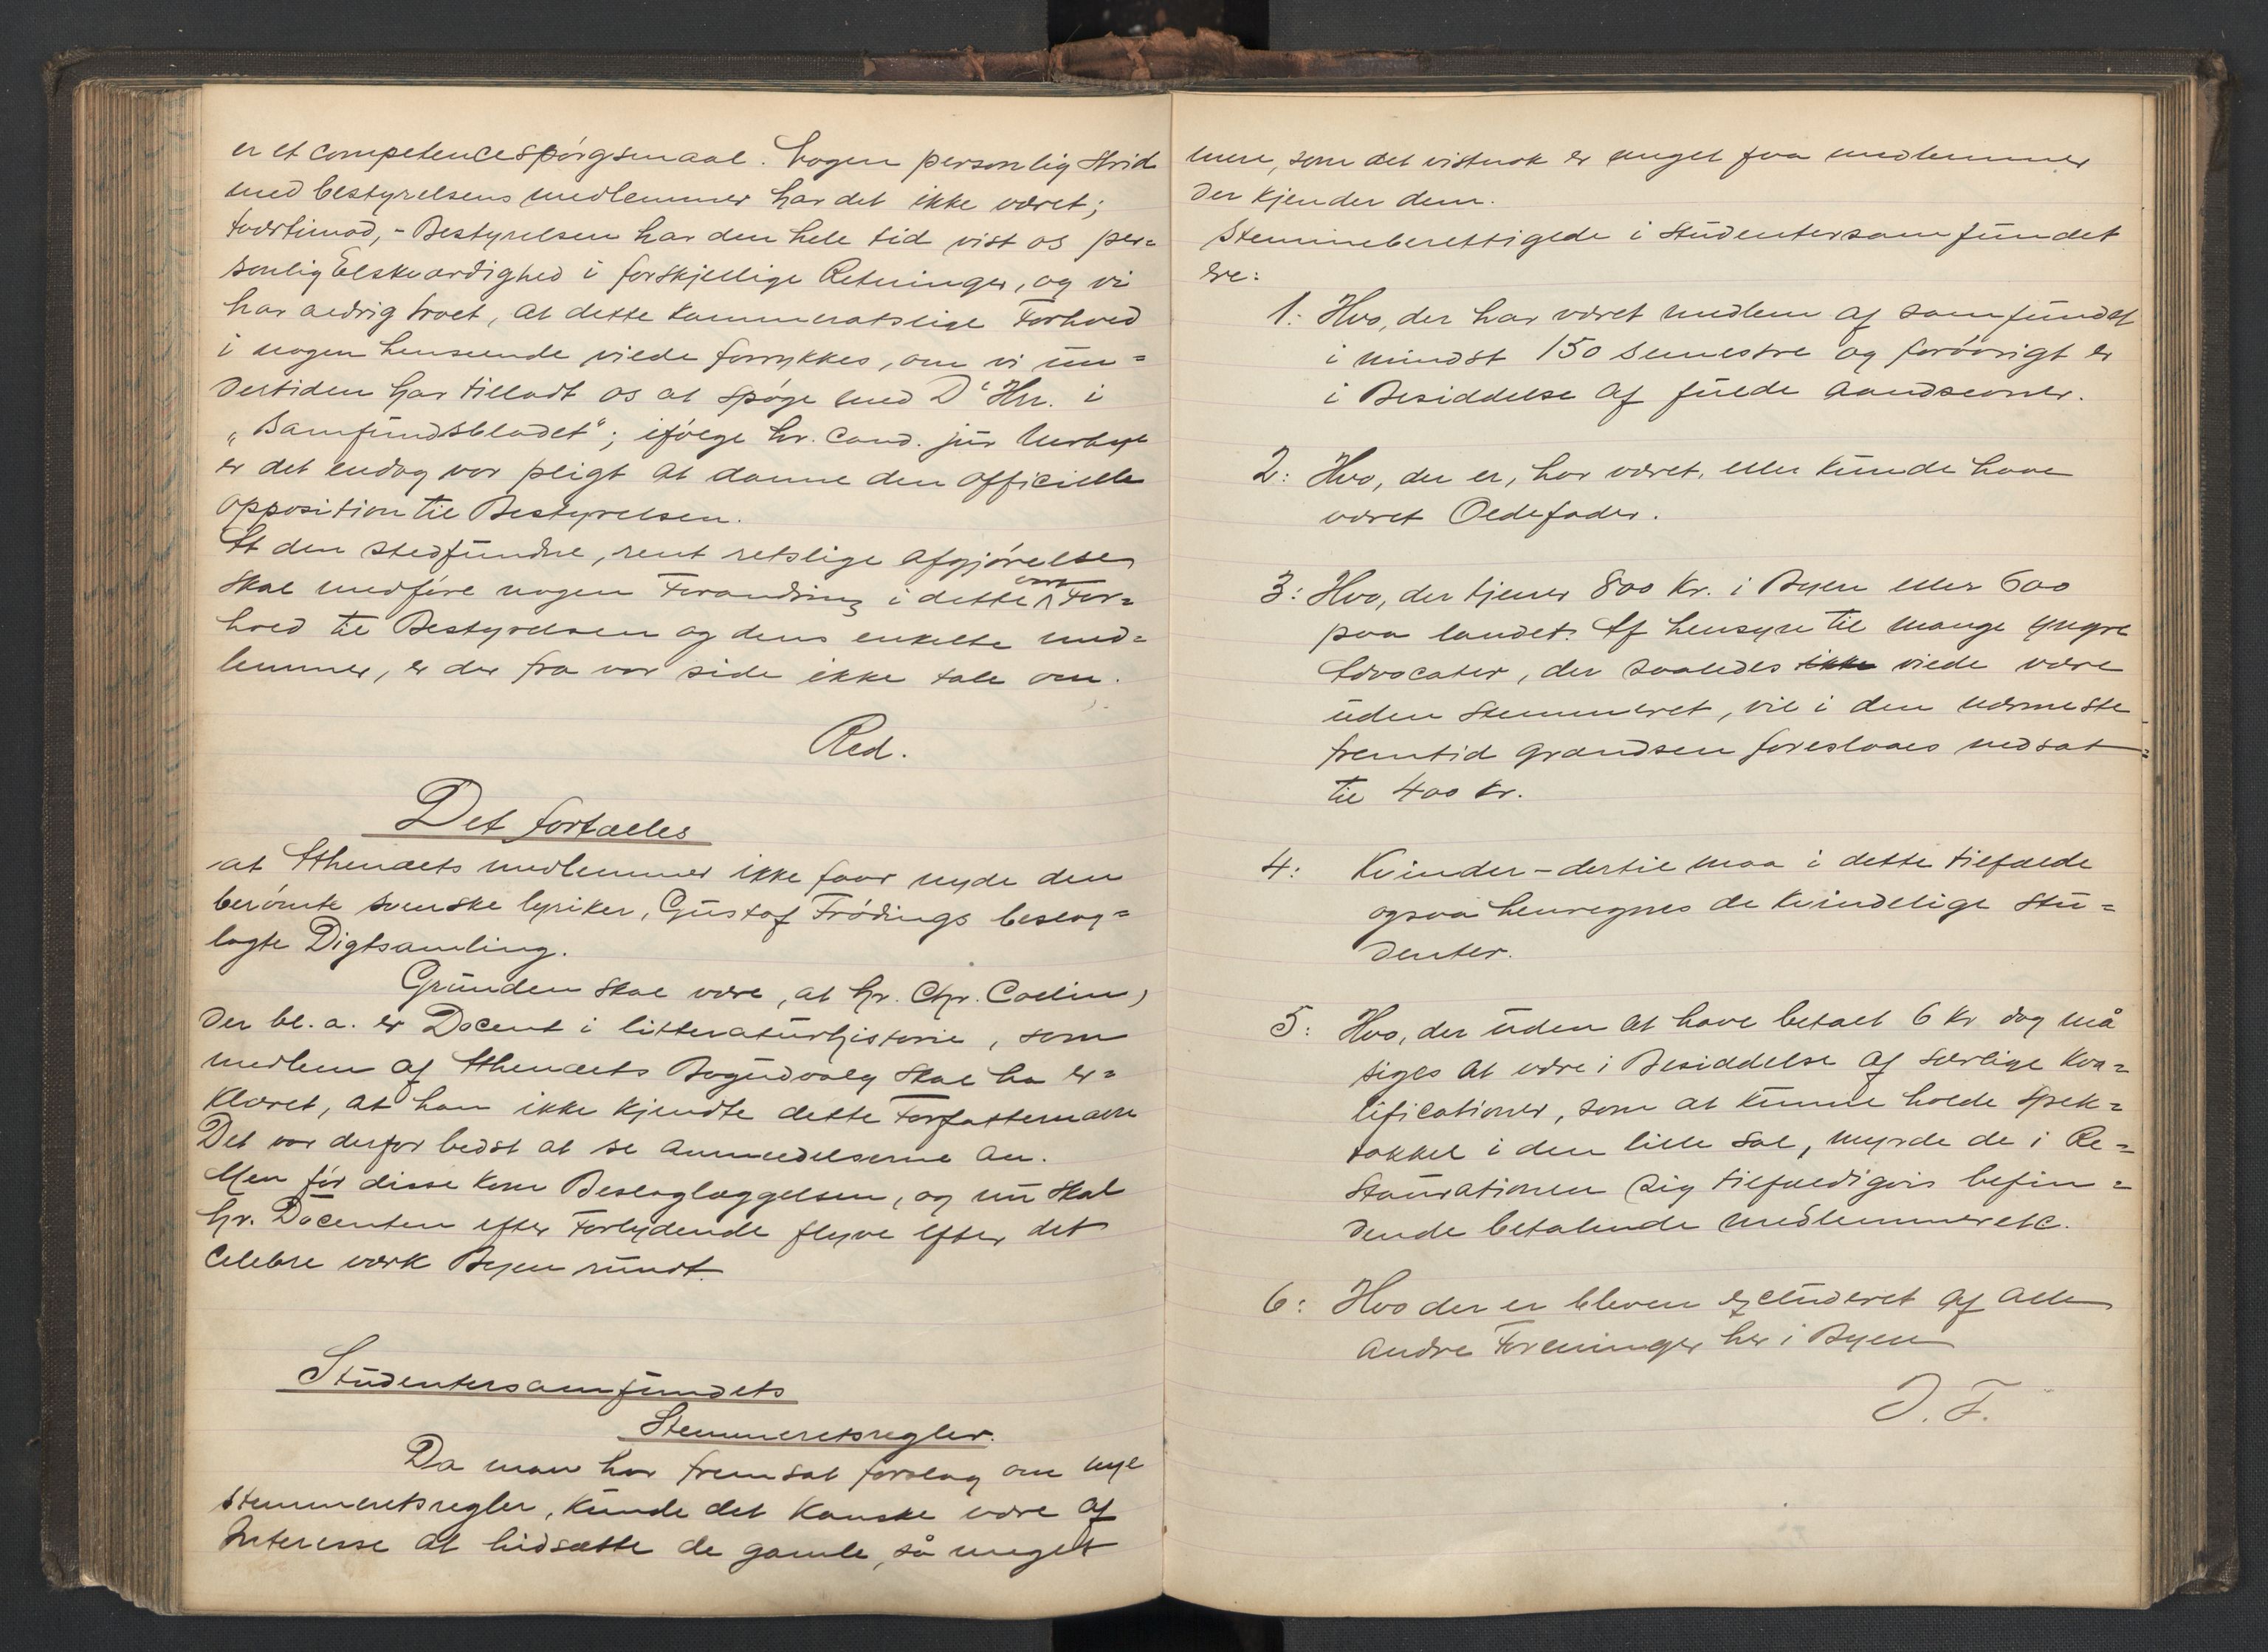 er et competencespörgsmaal. Nogen personlig Strid
med bestyrelsens medlemmer har det ikke været;
tværtimod, - Bestyrelsen har den hele tid vist os per=
sonlig Elskværdighed i forskjellige Retninger, og vi
har aldrig troet, at dette kammeratslige Forhold
i nogen henseende vilde forrykkes, om vi un=
dertiden har tilladt os at spøge med D'Hrr. i
„Samfundsbladet“; ifölge hr. Cand. jur
er det endog vor pligt at danne den officielle
opposition til Bestyrelsen.
At den stedfundne, rent retslige Afgjörelse
skal medföre nogen Forandring i dette vort For=
hold til Bestyrelsen og dens enkelte med=
lemmer, er der fra vor side ikke tale om.
Red.
Det fortælles
at Athenæets medlemmer ikke faar nyde den
berömte svenske lyriker, Gustaf Frödings beslag=
lagte Digtsamling.
Grunden skal være, at Hr. Chr. Collin,
der bl. a. er Docent i litteraturhistorie, som
medlem af Athenæets Bogudvalg skal ha er=
klæret, at han ikke kjendte dette Forfatternavn
Det var derfor bedst at se Anmeldelserne an.
Men för disse kom Beslaglæggelsen, og nu skal
Hr. Docenten efter Forlydende flyve efter det
celebre værk Byen rundt.
Studentersamfundets
Stemmeretsregler.
Da man har fremsat forslag om nye
stemmeretsregler, kunde det kanske være af
Interesse at hidsætte de gamle, så meget
mere, som det vistnok er meget faa medlemmer
der kjender dem.
Stemmeberettigede i Studentersamfundet
ere:
1: Hvo, der har været medlem af samfundet
i mindst 150 semestre og forövrigt er
i Besiddelse af fulde Aandsevner.
2: Hvo, der er, har været, eller kunde have
været Oldefader.
3: Hvo, der tjener 800 Kr. i Byen eller 600
paa landet. Af hensyn til mange yngre
Advocater, der saaledes ikke vilde være
uden stemmeret, vil i den nærmeste
fremtid grændsen foreslaaes nedsat
til 400 kr.
4: Kvinder - dertil maa i dette tilfælde
ogsaa henregnes de kvindelige Stu=
denter.
5: Hvo, der uden at have betalt 6 kr dog må
siges at være i Besiddelse af særlige Kva=
lificationer, som at kunne holde spek=
takkel i den lille sal, myrde de i Re=
staurationen sig tilfældigvis befin=
dende betalende medlemmer etc.
6: Hvo der er bleven excluderet af alle
andre Foreninger her i Byen
J. F.